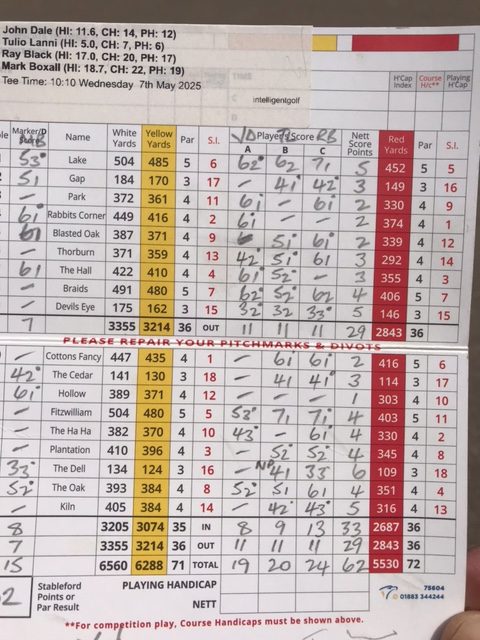 John Dale (HI: 11.6, CH: 14, PH: 12)
Tulio Lanni (HI: 5.0, CH: 7, PH: 6)
Ray Black (HI: 17.0, CH: 20, PH: 17)
Mark Boxall (HI: 18.7, CH: 22, PH: 19)
Tee Time: 10:10 Wednesday 7th May 2025
intelligentgolf
TIME
H'Cap Index Course H/c** Playing H'Cap
Marker/D Score Name White Yards Yellow Yards Par S.I. Player's Score A B C Nett Score Points Red Yards Par S.I.
MB JD TL RB
53• Lake 504 485 5 6 62• 62 71 5 452 5 5
51 Gap 184 170 3 17 – 41• 42• 3 149 3 16
– Park 372 361 4 11 61 – 61 2 330 4 9
61• Rabbits Corner 449 416 4 2 61 – – 2 374 4 1
61 Blasted Oak 387 371 4 9 51• 61 2 339 4 12
– Thorburn 371 359 4 13 42• 51 61 3 292 4 14
61 The Hall 422 410 4 4 61 52• – 3 355 4 3
– Braids 491 480 5 7 62• 52• 62 4 406 5 7
– Devils Eye 175 162 3 15 32• 32 33• 5 146 3 15
7 3355 3214 36 OUT 11 11 11 29 2843 36
PLEASE REPAIR YOUR PITCHMARKS & DIVOTS
– Cottons Fancy 447 435 4 1 – 61 61 2 416 5 6
42• The Cedar 141 130 3 18 – 41 41• 3 114 3 17
61• Hollow 389 371 4 12 – – – 1 303 4 10
– Fitzwilliam 504 480 5 5 53• 71 71• 4 403 5 11
– The Ha Ha 382 370 4 10 43• – 61• 4 330 4 2
– Plantation 410 396 4 3 – 52• 52• 4 345 4 8
33• The Dell 134 124 3 16 – NP 41 33 6 109 3 18
52• The Oak 393 384 4 8 52• 51 61 4 351 4 4
– Kiln 405 384 4 14 – 42• 43• 5 316 4 13
8 3205 3074 35 IN 8 9 13 33 2687 36
7 3355 3214 36 OUT 11 11 11 29 2843 36
15 6560 6288 71 TOTAL 19 20 24 62 5530 72
Stableford Points or Par Result PLAYING HANDICAP
NETT
75604
© 01883 344244
**For competition play, Course Handicaps must be shown above.